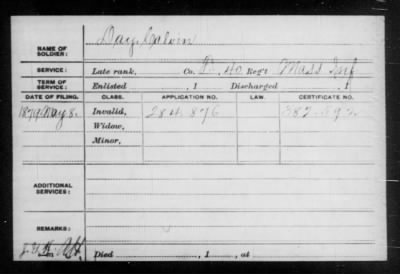 NAME OF SOLDIER: Day, Calvin
SERVICE: Late rank, Co. D, 40 Reg't Mass Inf
TERM OF SERVICE: Enlisted , 1 Discharged , 1
DATE OF FILING. CLASS. APPLICATION NO. LAW. CERTIFICATE NO.
1879 May 8. Invalid, 284.876
Widow,
Minor,
ADDITIONAL SERVICES:
REMARKS:
Died , 1 , at